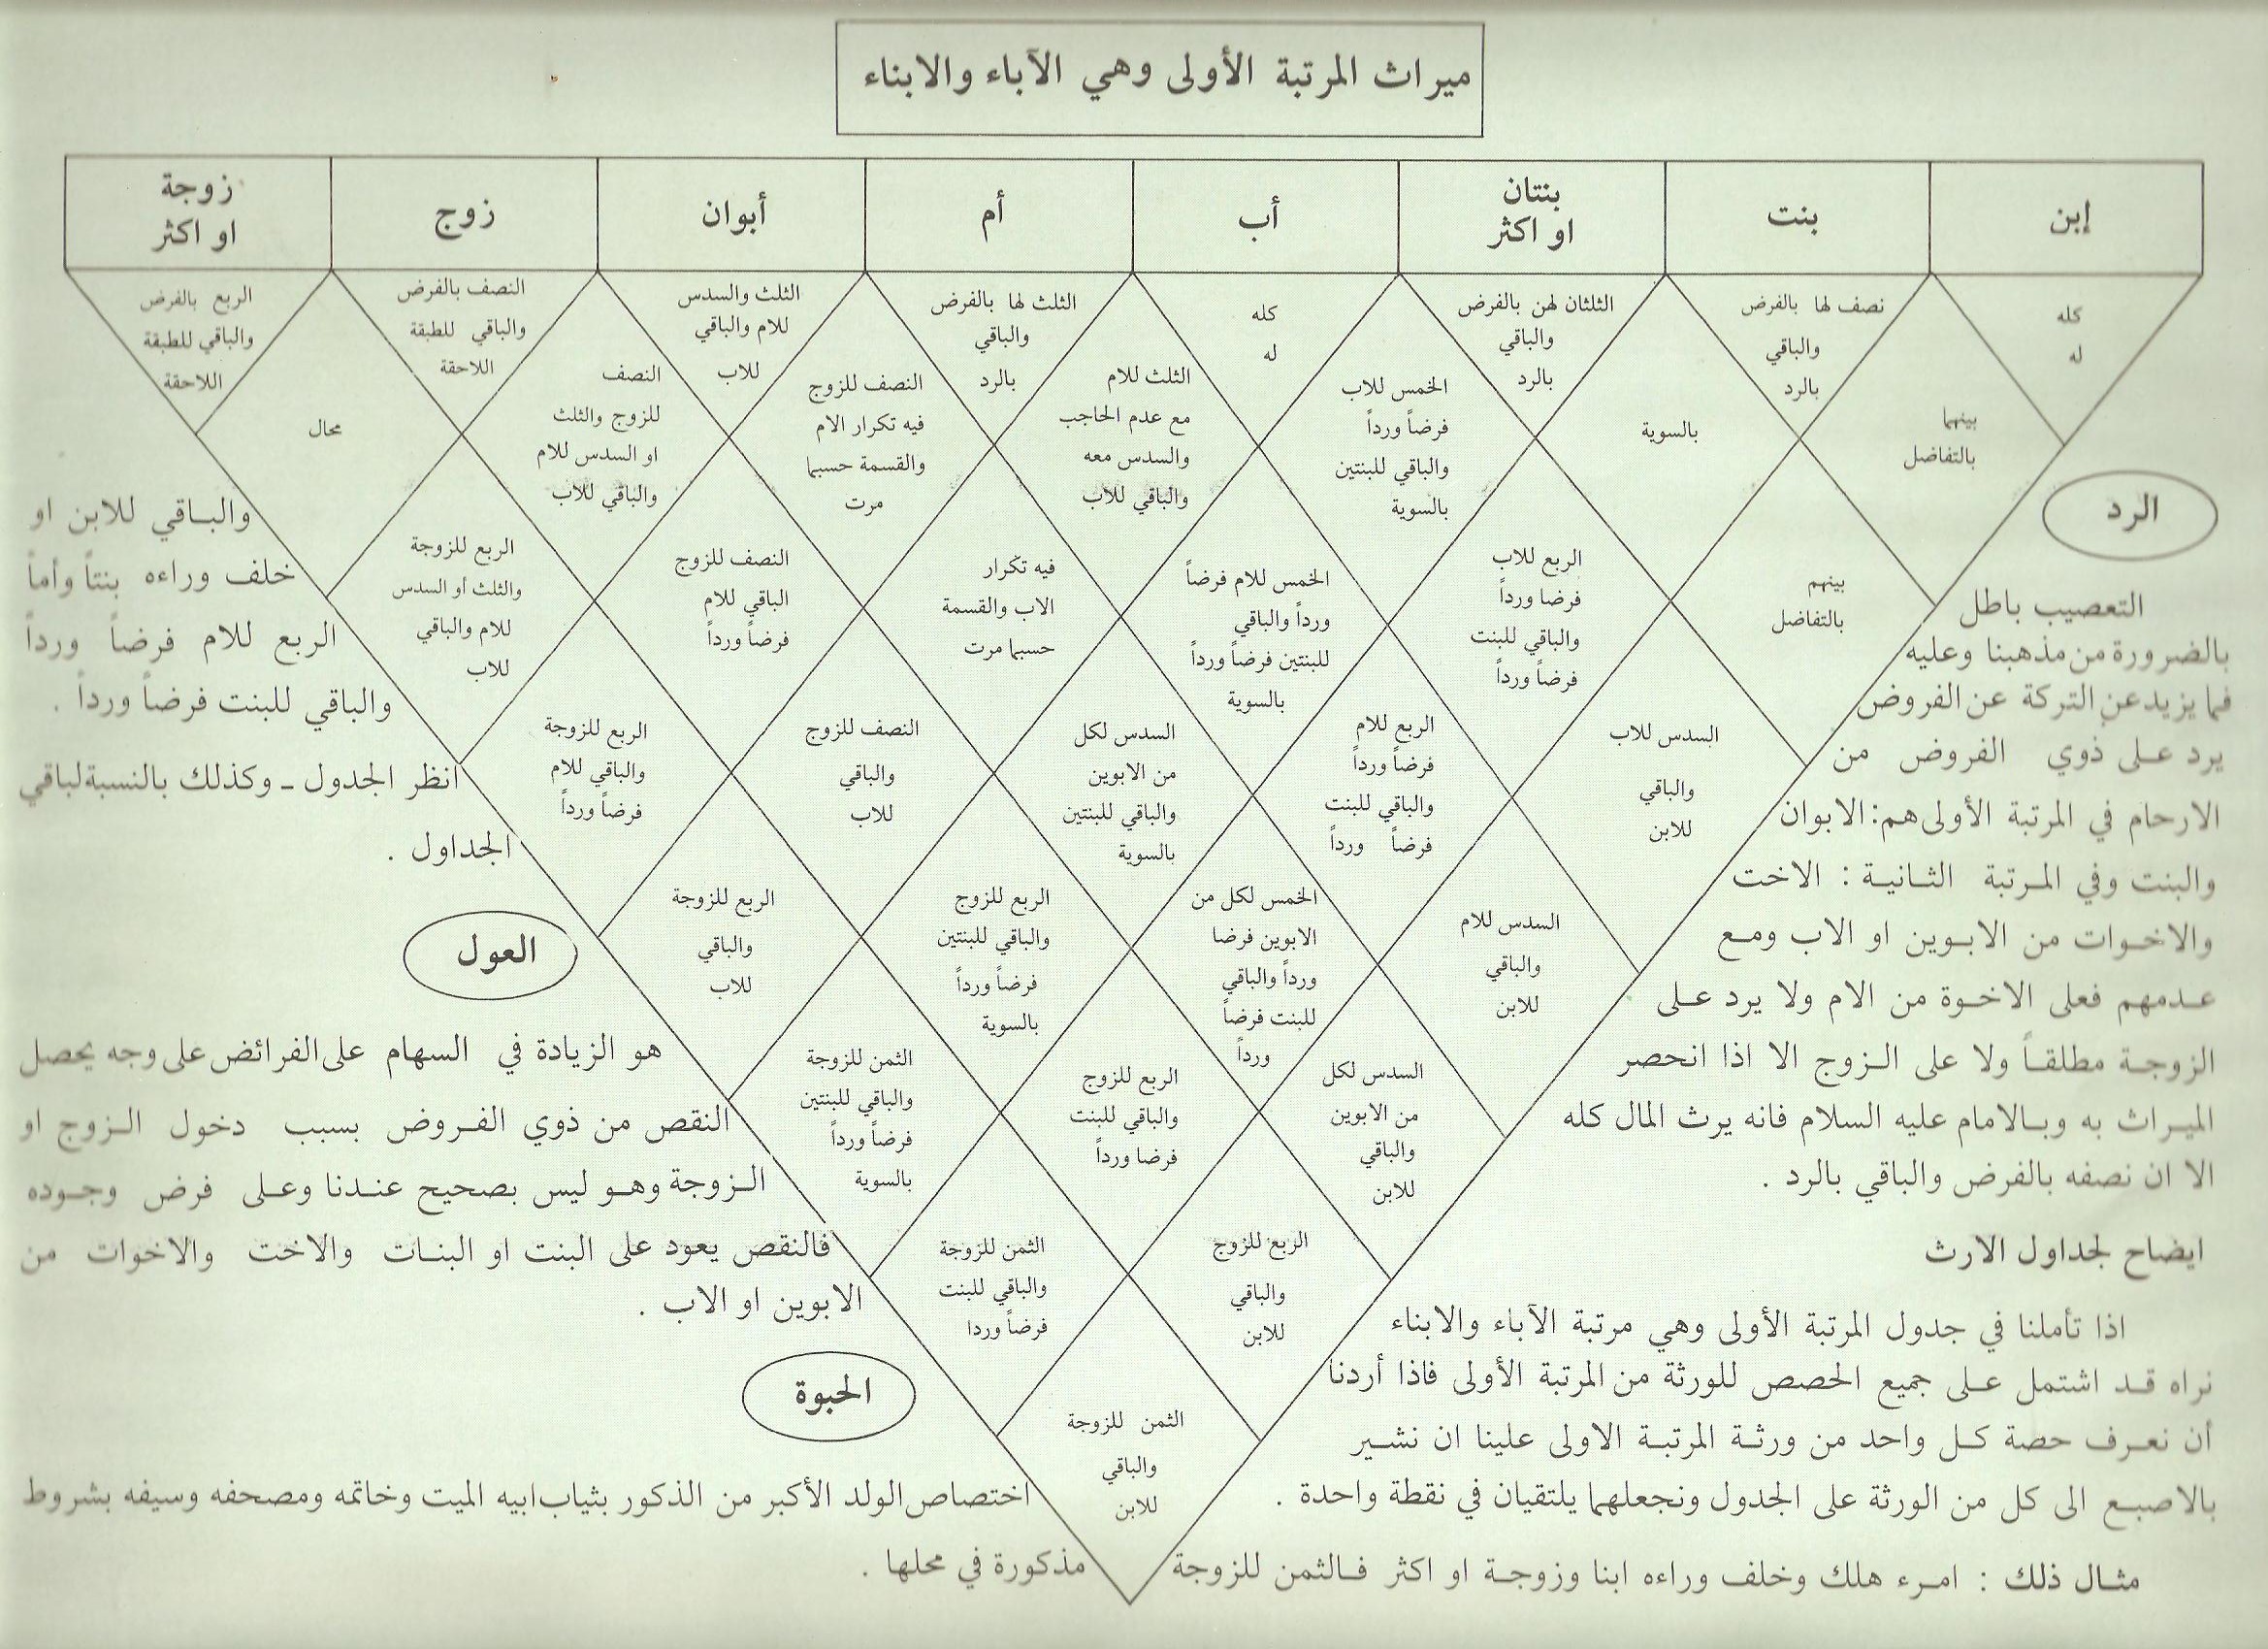 ميراث المرتبة الأولى وهي الآباء والابناء
إبن
بنت
بنتان
او اكثر
أب
أم
أبوان
زوج
زوجة
او اكثر
كله
له
نصف لها بالفرض
والباقي
بالرد
الثلثان لهن بالفرض
والباقي
بالرد
كله
له
الثلث لها بالفرض
والباقي
بالرد
الثلث والسدس
للام والباقي
للاب
النصف بالفرض
والباقي للطبقة
اللاحقة
الربع بالفرض
والباقي للطبقة
اللاحقة
بينهما
بالتفاضل
بالسوية
الخمس للاب
فرضاً ورداً
والباقي للبنتين
بالسوية
الثلث للام
مع عدم الحاجب
والسدس معه
والباقي للاب
النصف للزوج
فيه تكرار الام
والقسمة حسبما
مرت
النصف
للزوج والثلث
او السدس للام
والباقي للاب
محال
بينهم
بالتفاضل
الربع للاب
فرضا ورداً
والباقي للبنت
فرضاً ورداً
الخمس للام فرضاً
ورداً والباقي
للبنتين فرضاً ورداً
بالسوية
فيه تكرار
الاب والقسمة
حسبما مرت
النصف للزوج
الباقي للام
فرضاً ورداً
الربع للزوجة
والثلث أو السدس
للام والباقي
للاب
السدس للاب
والباقي
للابن
الربع للام
فرضاً ورداً
والباقي للبنت
فرضاً ورداً
السدس لكل
من الابوين
والباقي للبنتين
بالسوية
النصف للزوج
والباقي
للاب
الربع للزوجة
والباقي للام
فرضاً ورداً
السدس للام
والباقي
للابن
الخمس لكل من
الابوين فرضا
ورداً والباقي
للبنت فرضاً
ورداً
الربع للزوج
والباقي للبنتين
فرضاً ورداً
بالسوية
الربع للزوجة
والباقي
للاب
السدس لكل
من الابوين
والباقي
للابن
الربع للزوج
والباقي للبنت
فرضا ورداً
الثمن للزوجة
والباقي للبنتين
فرضاً ورداً
بالسوية
الربع للزوج
والباقي
للابن
الثمن للزوجة
والباقي للبنت
فرضاً وردا
الثمن للزوجة
والباقي
للابن
الرد
التعصيب باطل
بالضرورة من مذهبنا وعليه
فما يزيد عن التركة عن الفروض
يرد على ذوي الفروض من
الارحام في المرتبة الأولى هم: الابوان
والبنت وفي المرتبة الثانية : الاخت
والاخوات من الابوين او الاب ومع
عدمهم فعلى الاخوة من الام ولا يرد على
الزوجة مطلقاً ولا على الزوج الا اذا انحصر
الميراث به وبالامام عليه السلام فانه يرث المال كله
الا ان نصفه بالفرض والباقي بالرد .
ايضاح لجداول الارث
اذا تأملنا في جدول المرتبة الأولى وهي مرتبة الآباء والابناء
نراه قد اشتمل على جميع الحصص للورثة من المرتبة الأولى فاذا أردنا
أن نعرف حصة كل واحد من ورثة المرتبة الاولى علينا ان نشير
بالاصبع الى كل من الورثة على الجدول ونجعلهما يلتقيان في نقطة واحدة .
مثال ذلك : امرء هلك وخلف وراءه ابنا وزوجة او اكثر فالثمن للزوجة
والباقي للابن او
خلف وراءه بنتاً وأماً
الربع للام فرضاً ورداً
والباقي للبنت فرضاً ورداً .
انظر الجدول ـ وكذلك بالنسبة لباقي
الجداول .
العول
هو الزيادة في السهام على الفرائض على وجه يحصل
النقص من ذوي الفروض بسبب دخول الزوج او
الزوجة وهو ليس بصحيح عندنا وعلى فرض وجوده
فالنقص يعود على البنت او البنات والاخت والاخوات من
الابوين او الاب .
الحبوة
اختصاص الولد الأكبر من الذكور بثياب ابيه الميت وخاتمه ومصحفه وسيفه بشروط
مذكورة في محلها .